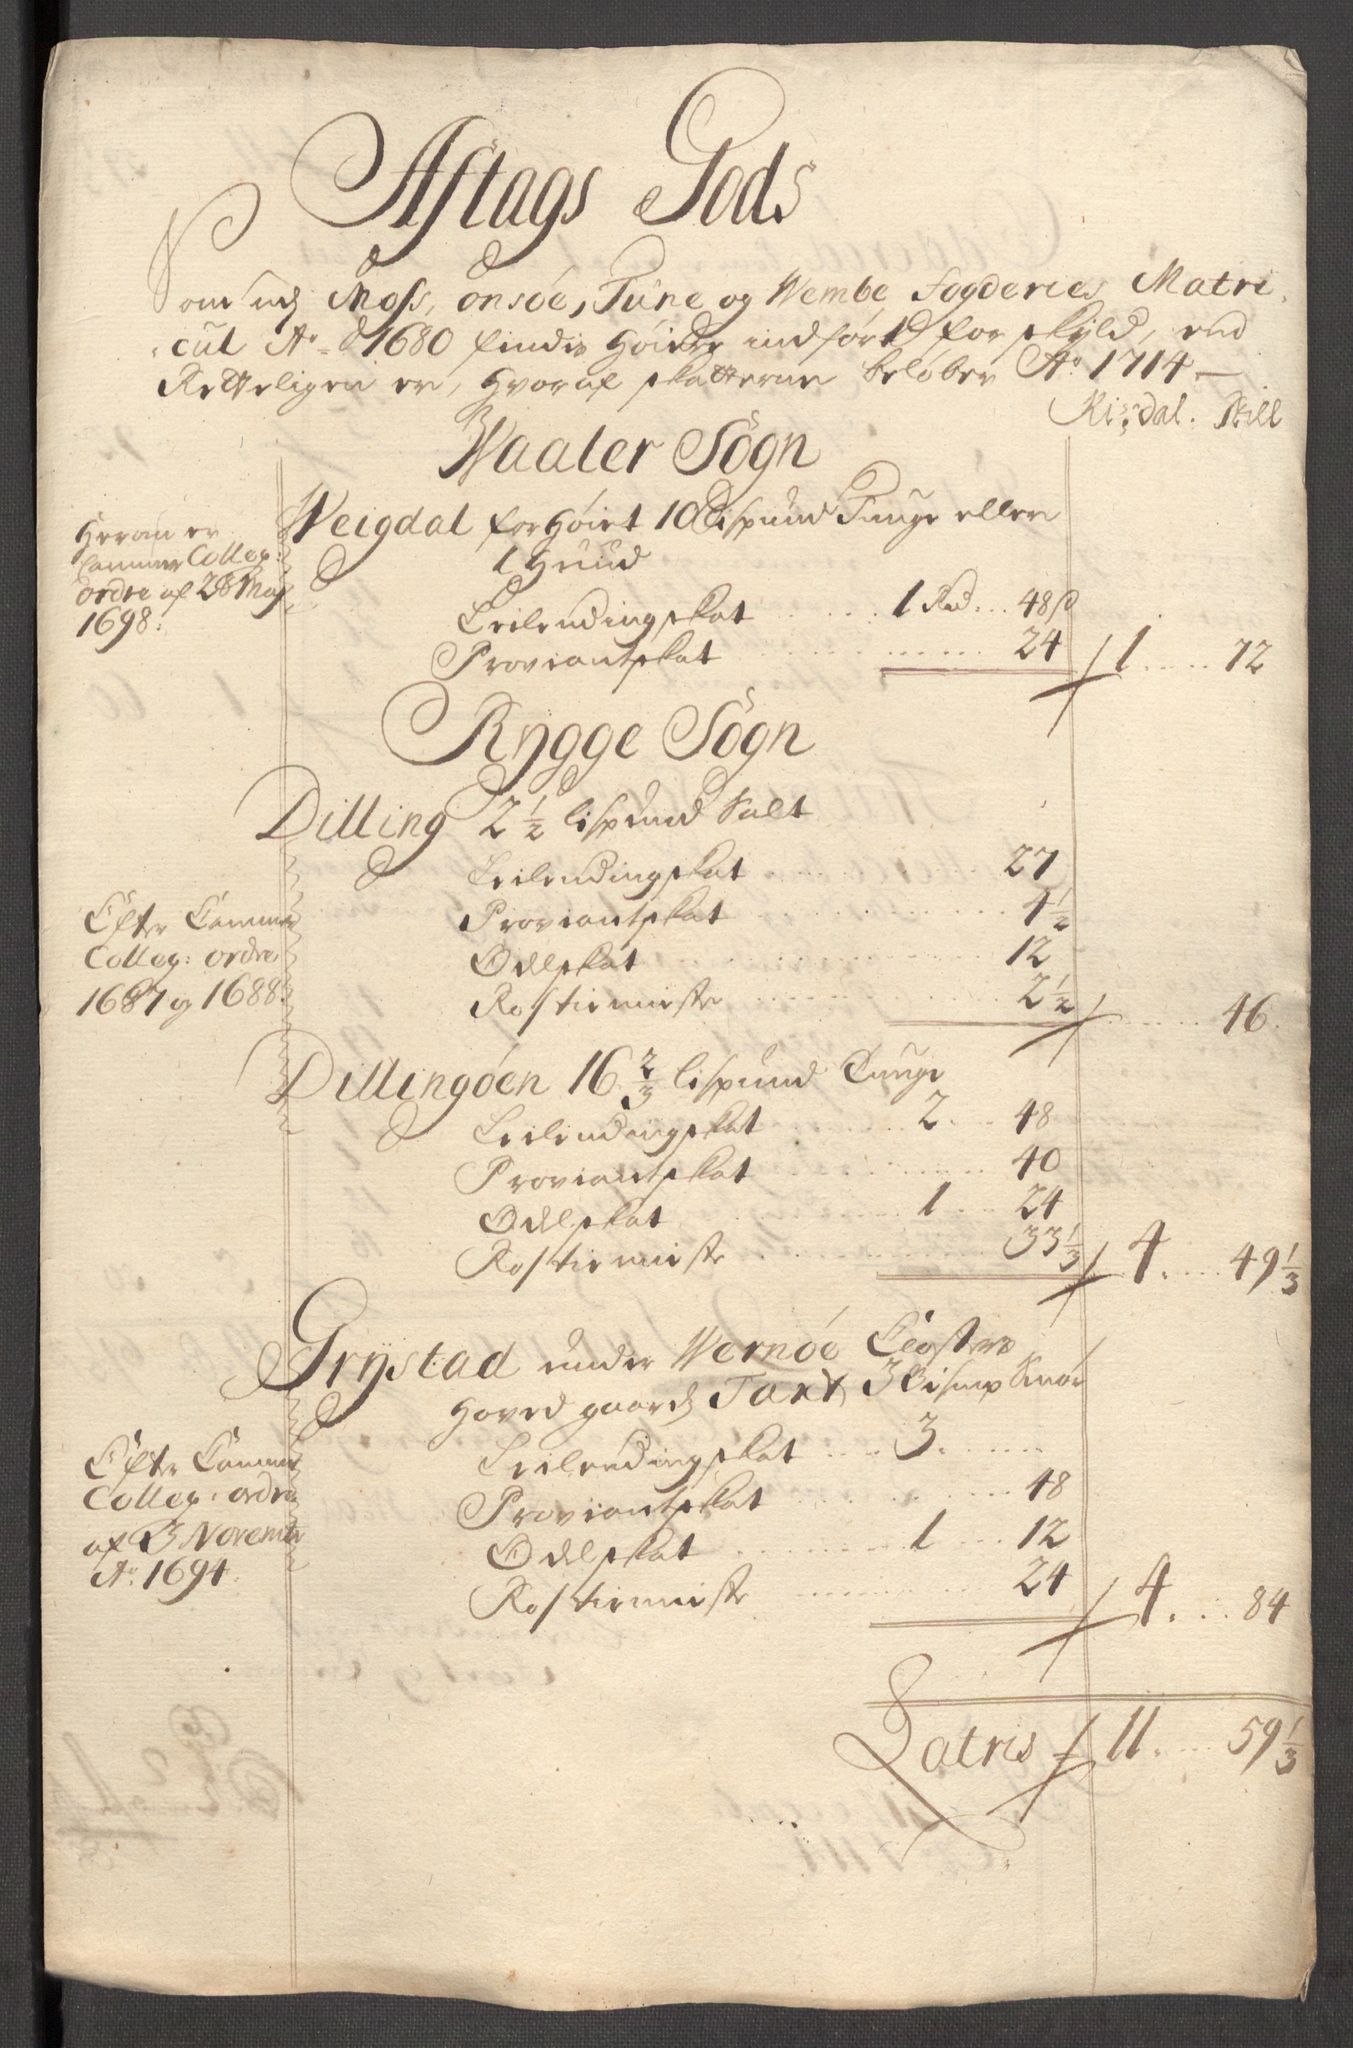 Aftags Gods
Som udj Moss, onsöe, Tune og Wembe Fogderies Matri-
cul Ao 1680 findis Höiere indfört for skyld, end
Retteligen er, Hvoraf skatterne belöber Ao 1714 –
Rixdal. Skill
Waaler Sogn
Herom er
Cammer Colleg:
ordre af 28 Maj
1698.
Weigdal forHöiet 10 Lispund Tunge eller
1 Huud
Leilendingskat 1 Rd. 48 s
Proviantskat 24 / 1 72
Rygge Sogn
Dilling 2 1/2 lispund Salt
Leilendingskat 27
Efter Cammer
Colleg: ordre
1687 og 1688.
Proviantskat 4 1/2
Odelskat 12
Rostieniste 2 1/2 / 46
Dillingöen 16 2/3 lispund Tunge
Leilendingskat 2 48
Proviantskat 40
Odelskat 1 24
Rostieniste 33 1/3 / 4 49 1/3
Grystad under Wernöe Closters
Hovedgaards Taxt 3 Bismp Smör
Efter Cammer
Colleg: ordre
af 3 Novembr
Ao 1694.
Leilendingskat 3
Proviantskat 48
Odelskat 1 12
Rostieniste 24 / 4 84
Latris / 11 59 1/3